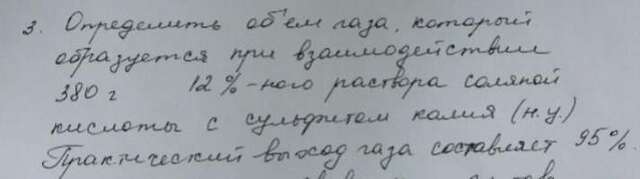 3. Определить об'ем газа, который
образуется при взаимодействии
380 г 12 %-ного раствора соляной
кислоты с сульфитом калия (н.у.)
Практический выход газа составляет 95%.